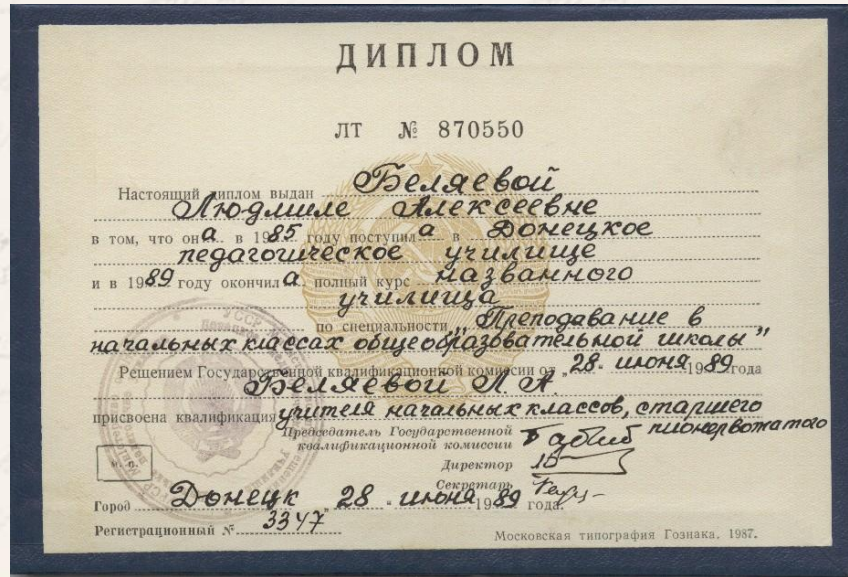 ДИПЛОМ
ЛТ № 870550
Настоящий диплом выдан Беляевой
Людмиле Алексеевне
в том, что он а в 1985 году поступил а в Донецкое
педагогическое училище
и в 1989 году окончил а полный курс названного
училища
по специальности „Преподавание в
начальных классах общеобразовательной школы"
Решением Государственной квалификационной комиссии от „28" июня 1989 года
Беляевой Л. А.
присвоена квалификация учителя начальных классов, старшего
пионервожатого
Председатель Государственной
квалификационной комиссии
Директор
Секретарь
М. П.
Город Донецк „28" июня 1989 года.
Регистрационный № 3347
Московская типография Гознака. 1987.